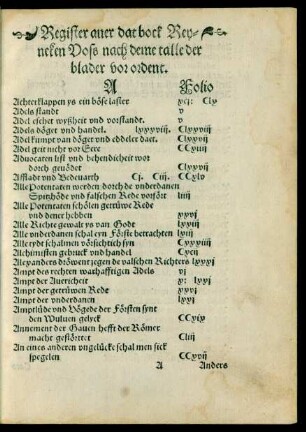 Register auer dat boek Rey-
neken Voss nach deme talle der
blader vorordent.
A Folio
Achterklappen ys ein böse laster xcj: Clv
Adels standt v
Adel eschet wyßheit vnd vorstandt. v
Adels döget vnd handel. lxxxviij. Clxxviij
Adel kumpt van döget vnd eddeler daet. Clxxvij
Adel geit nicht vor Eere CCxiiij
Aduocaten list vnd behendicheit wot
dorch geuödet Clxxvij
Affladt vnd Bedeuarth Cj. Ciij. CCxlv
Alle Potentaten werden dorch de vnderdanen
vnd falschen Rede vorfört liiij
Alle Potentaten schölen getrüwe Rede
vnd dener hebben xxvj
Alle Richte gewalt ys van Godt lxyij
Alle vnderdanen schal eyn Förste betrachten lxiij
Alle tydt schalmen vörsichtich syn CCxxxiiij
Alchimisten gebruck vnd handel Cxcij
Alexanders dröwent jegen de valschen Richters lxxxj
Ampt des rechten warhafftigen Adels vj
Ampt der Auericheit x: lxxj
Ampt der getrüwen Rede xxvj
Ampt der vnderdanen lxxj
Amptlüde vnd Vögede der Försten synt
den Wuluen gelyck CCxix
Annement der Gauen hefft der Römer
macht gestörtet Cliij
An eines anderen vngelücke schal men sick
spegelen CCxvij
A Anders